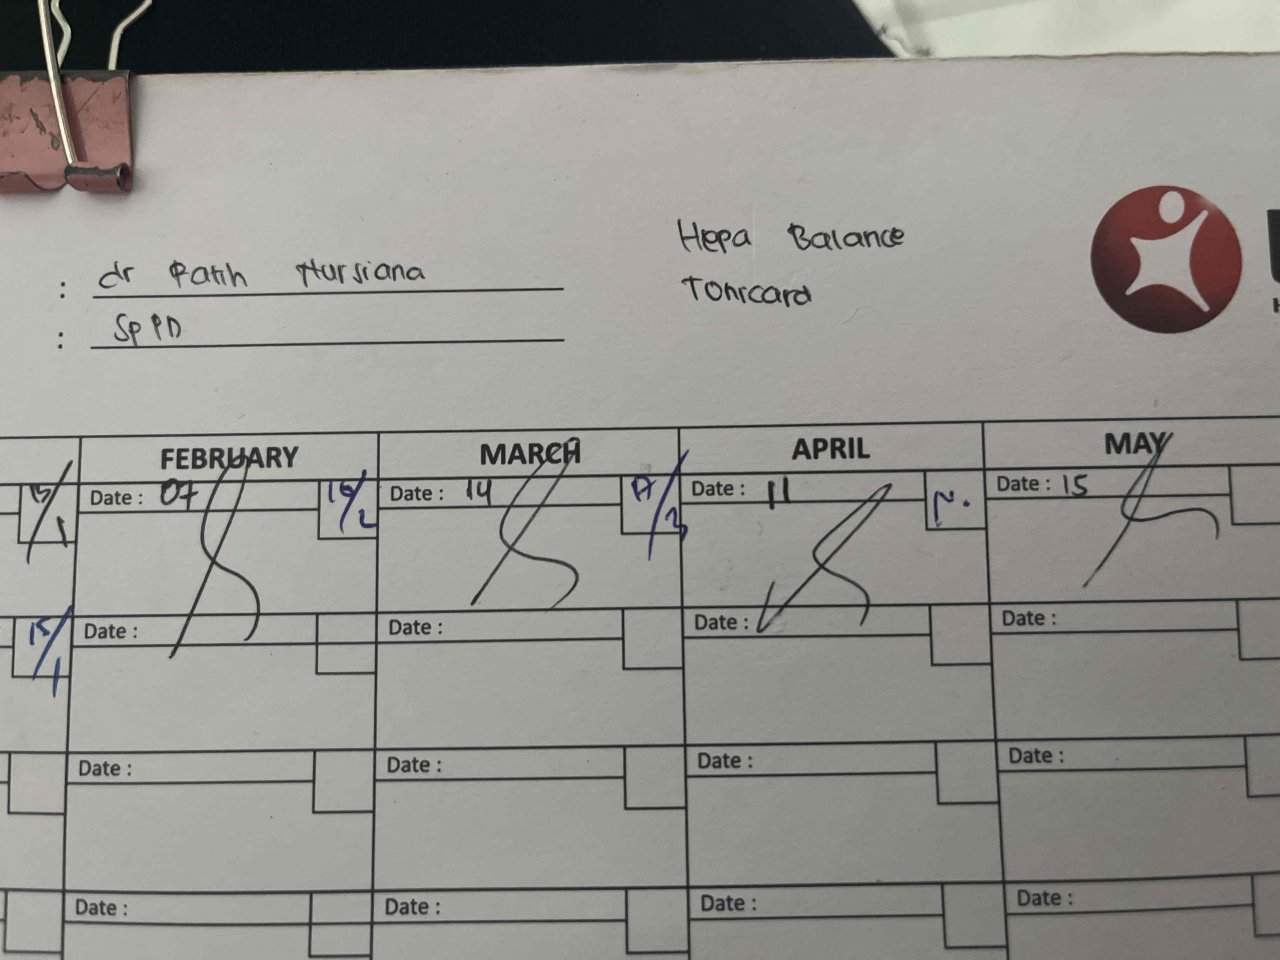 Hepa Balance
: dr Ratih Nursiana
Tonicard
: SpPD
FEBRUARY MARCH APRIL MAY
Date : 07 16/2 Date : 14 17/3 Date : 11 N. Date : 15
15/1 Date : Date : Date : Date :
Date : Date : Date : Date :
Date : Date : Date : Date :